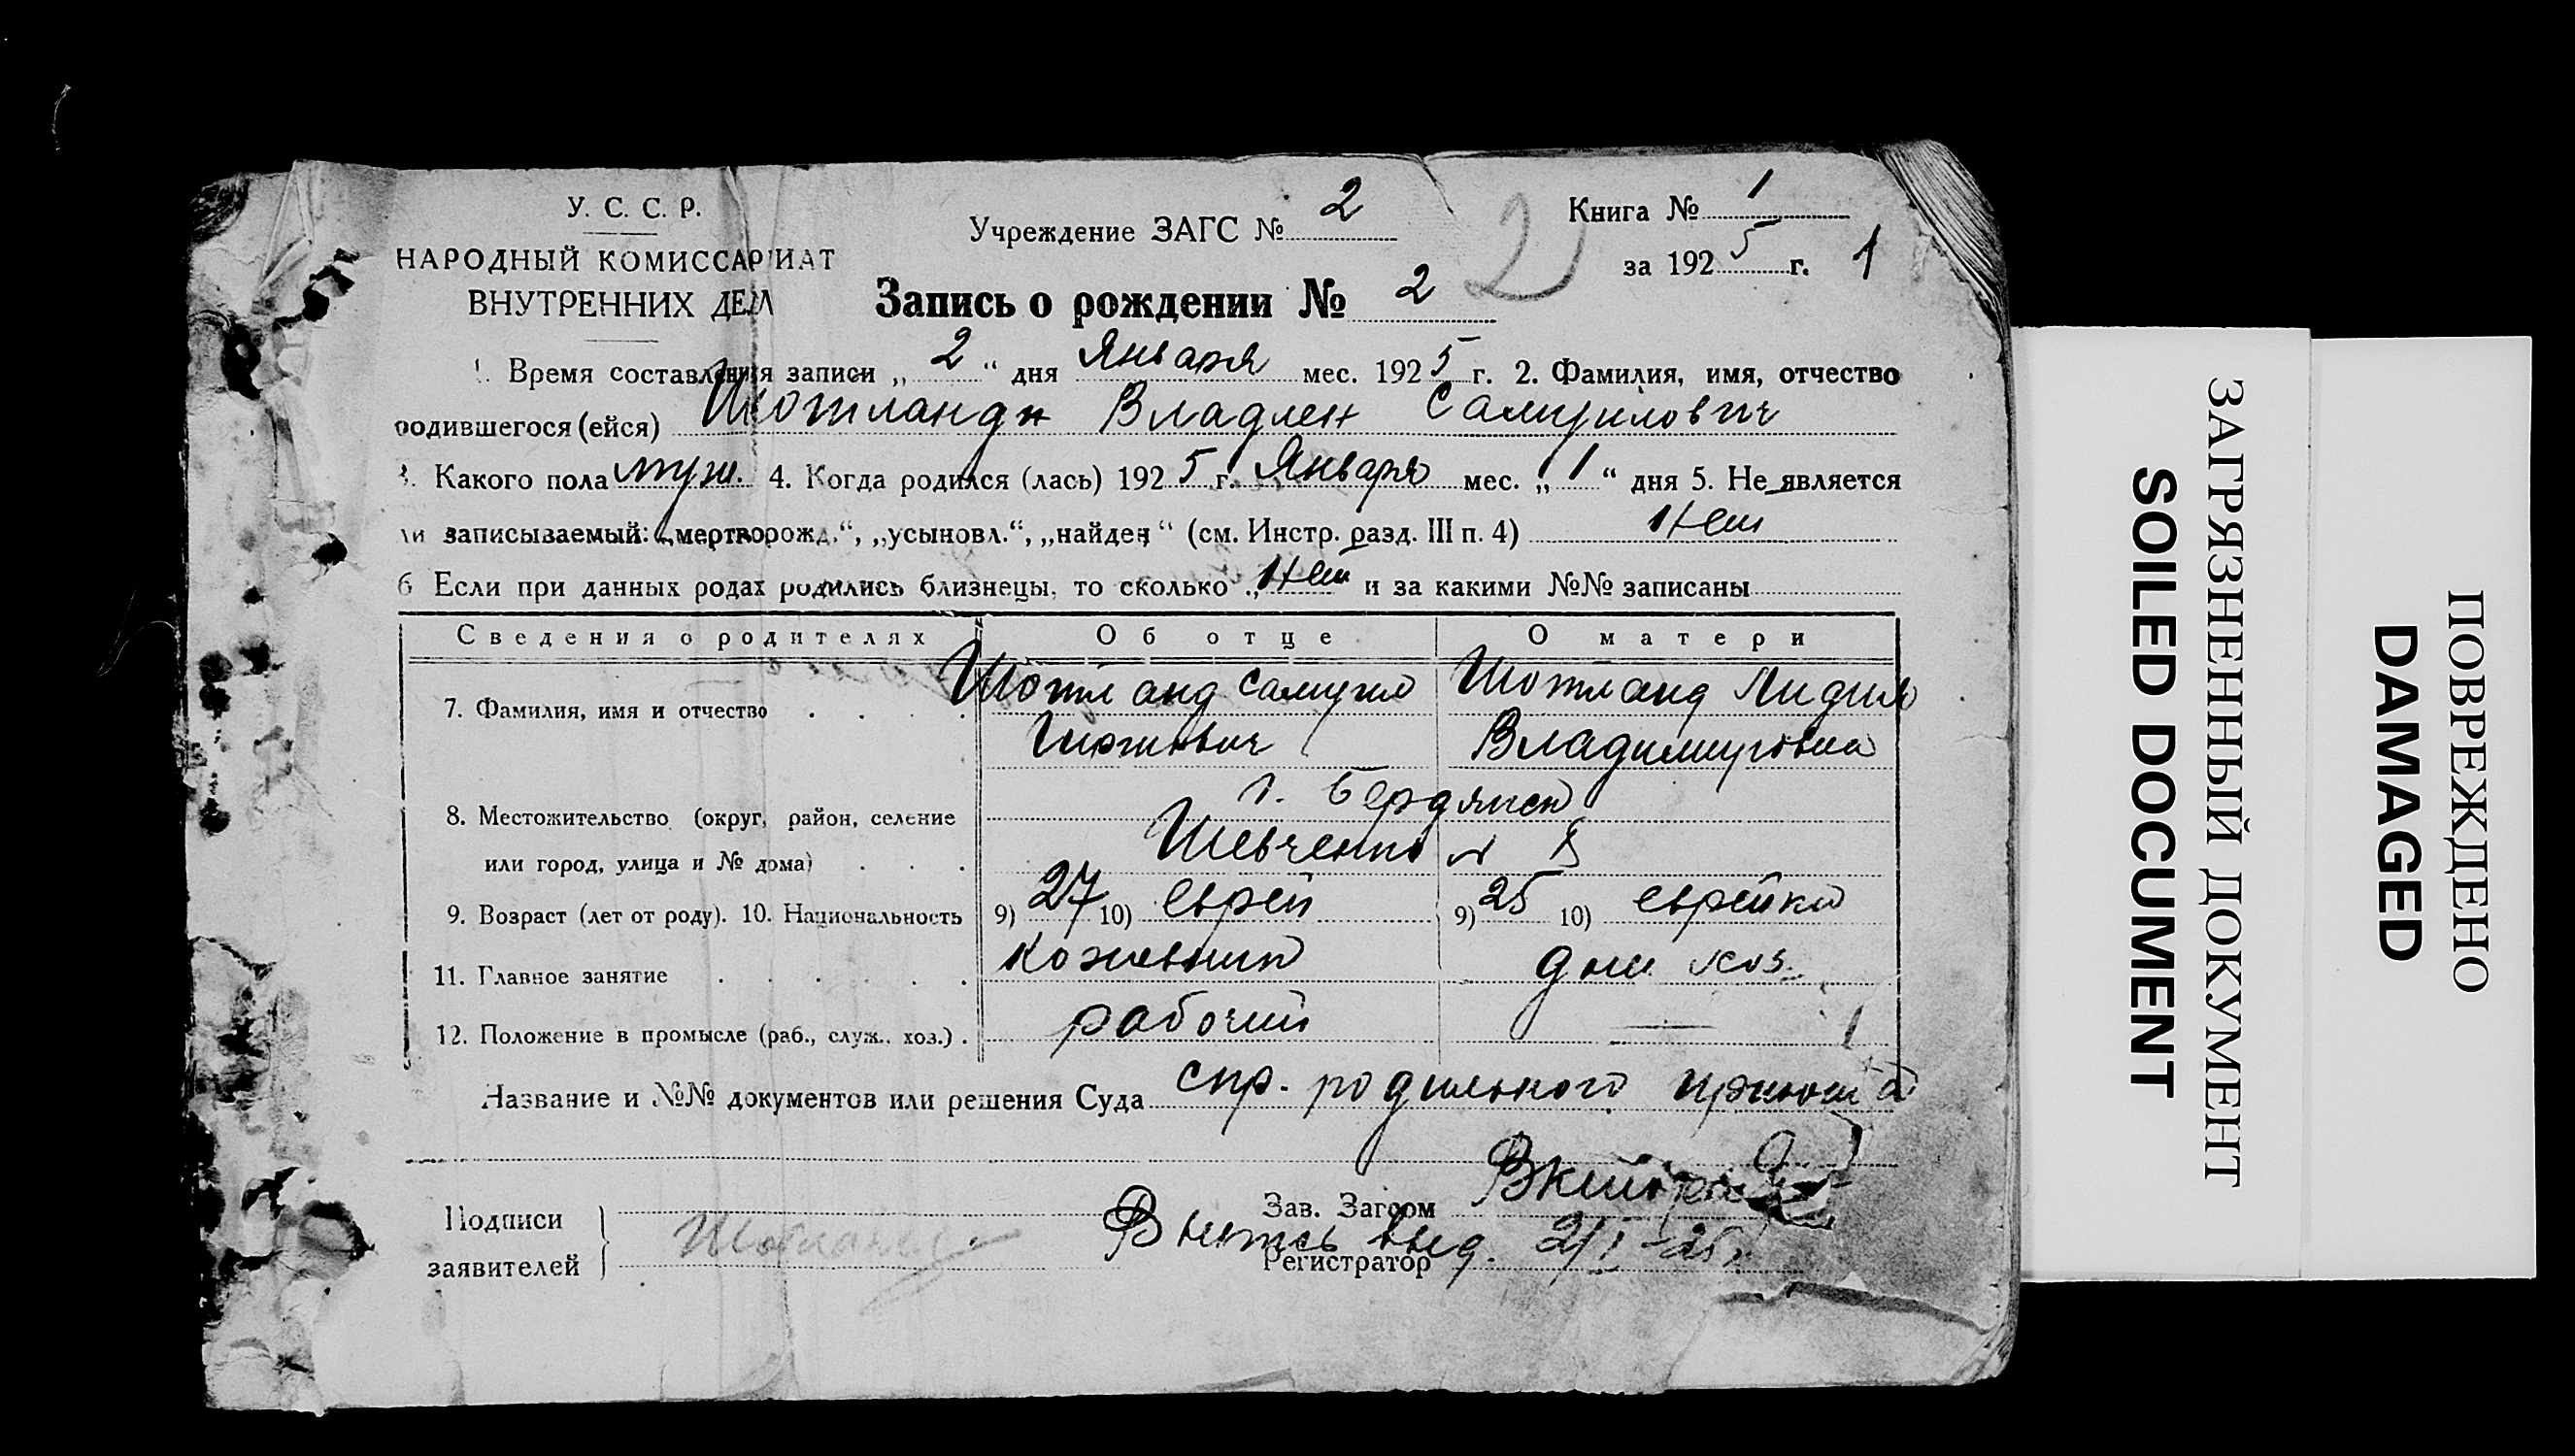 У. С. С. Р.
НАРОДНЫЙ КОМИССАРИАТ
ВНУТРЕННИХ ДЕЛ
Учреждение ЗАГС № 2
Книга № 1
за 1925 г. 1
2
Запись о рождении № 2
1. Время составления записи „ 2 “ дня Января мес. 1925 г. 2. Фамилия, имя, отчество
родившегося (ейся) Шотланд Владлен Самуилович
3. Какого пола муж. 4. Когда родился (лась) 1925 г. Января мес. „ 1 “ дня 5. Не является
ли записываемый: „мерторожд.“, „усыновл.“, „найден“ (см. Инстр. разд. III п. 4) Нет
6 Если при данных родах родились близнецы, то сколько Нет и за какими №№ записаны
Сведения о родителях Об отце О матери
7. Фамилия, имя и отчество . . . . Шотланд Самуил Шотланд Лидия
Владимировна
г. Бердянск
8. Местожительство (округ, район, селение
или город, улица и № дома) . . . Шевченко № 8
9. Возраст (лет от роду). 10. Национальность 9) 27 10) еврей 9) 25 10) еврейка
11. Главное занятие . . . . . . кожевник дом. хоз.
12. Положение в промысле (раб., служ.. хоз.) . рабочий —
Название и №№ документов или решения Суда спр. родильного приюта
Подписи
заявителей
Шотланд
Зав. Загсом
Регистратор
Выпись выд. 2/I-25 г.
ЗАГРЯЗНЕННЫЙ ДОКУМЕНТ
SOILED DOCUMENT
ПОВРЕЖДЕНО
DAMAGED